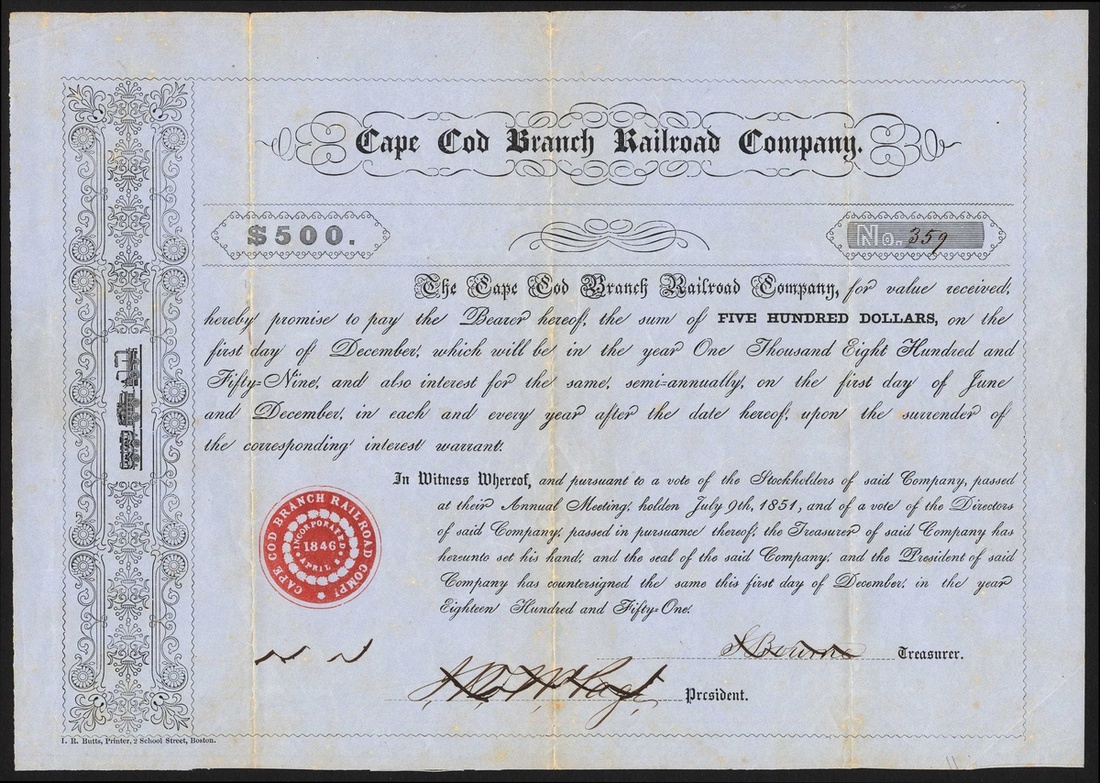 Cape Cod Branch Railroad Company.
$500.
No. 359
The Cape Cod Branch Railroad Company, for value received,
hereby promise to pay the Bearer hereof, the sum of FIVE HUNDRED DOLLARS, on the
first day of December, which will be in the year One Thousand Eight Hundred and
Fifty-Nine, and also interest for the same, semi-annually, on the first day of June
and December, in each and every year after the date hereof, upon the surrender of
the corresponding interest warrant.
In Witness Whereof, and pursuant to a vote of the Stockholders of said Company, passed
at their Annual Meeting, holden July 9th, 1851, and of a vote of the Directors
of said Company, passed in pursuance thereof, the Treasurer of said Company has
hereunto set his hand, and the seal of the said Company, and the President of said
Company has countersigned the same this first day of December, in the year
Eighteen Hundred and Fifty-One.
CAPE COD BRANCH RAILROAD COMP!
INCORPORATED
1846
APRIL
Bourne Treasurer.
President.
I. R. Butts, Printer, 2 School Street, Boston.